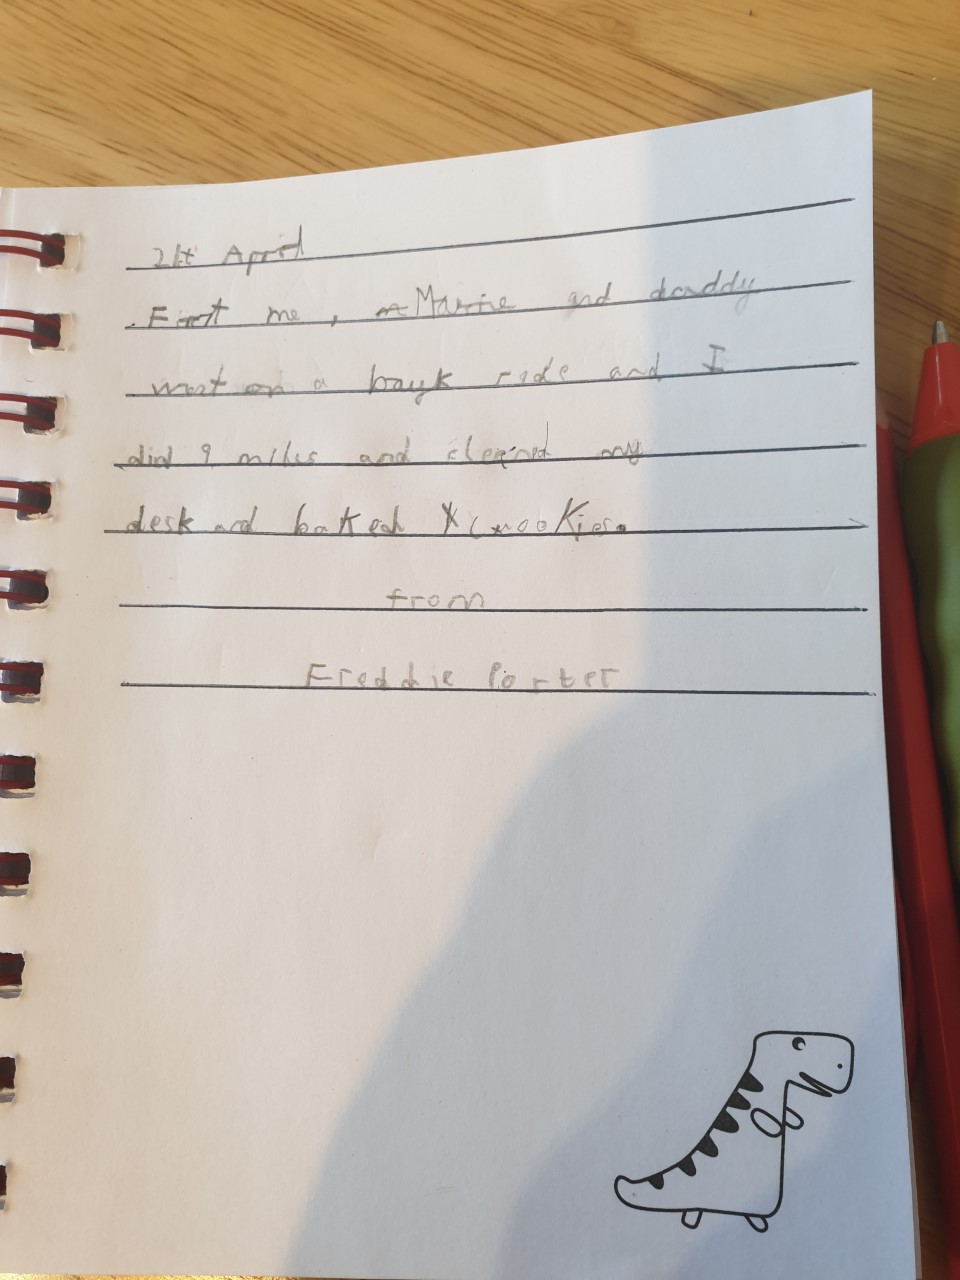 21t April
First me, Marine and daddy
went on a bayk ride and I
did 9 miles and cleend my
desk and baked cwookies.
from
Freddie Porter